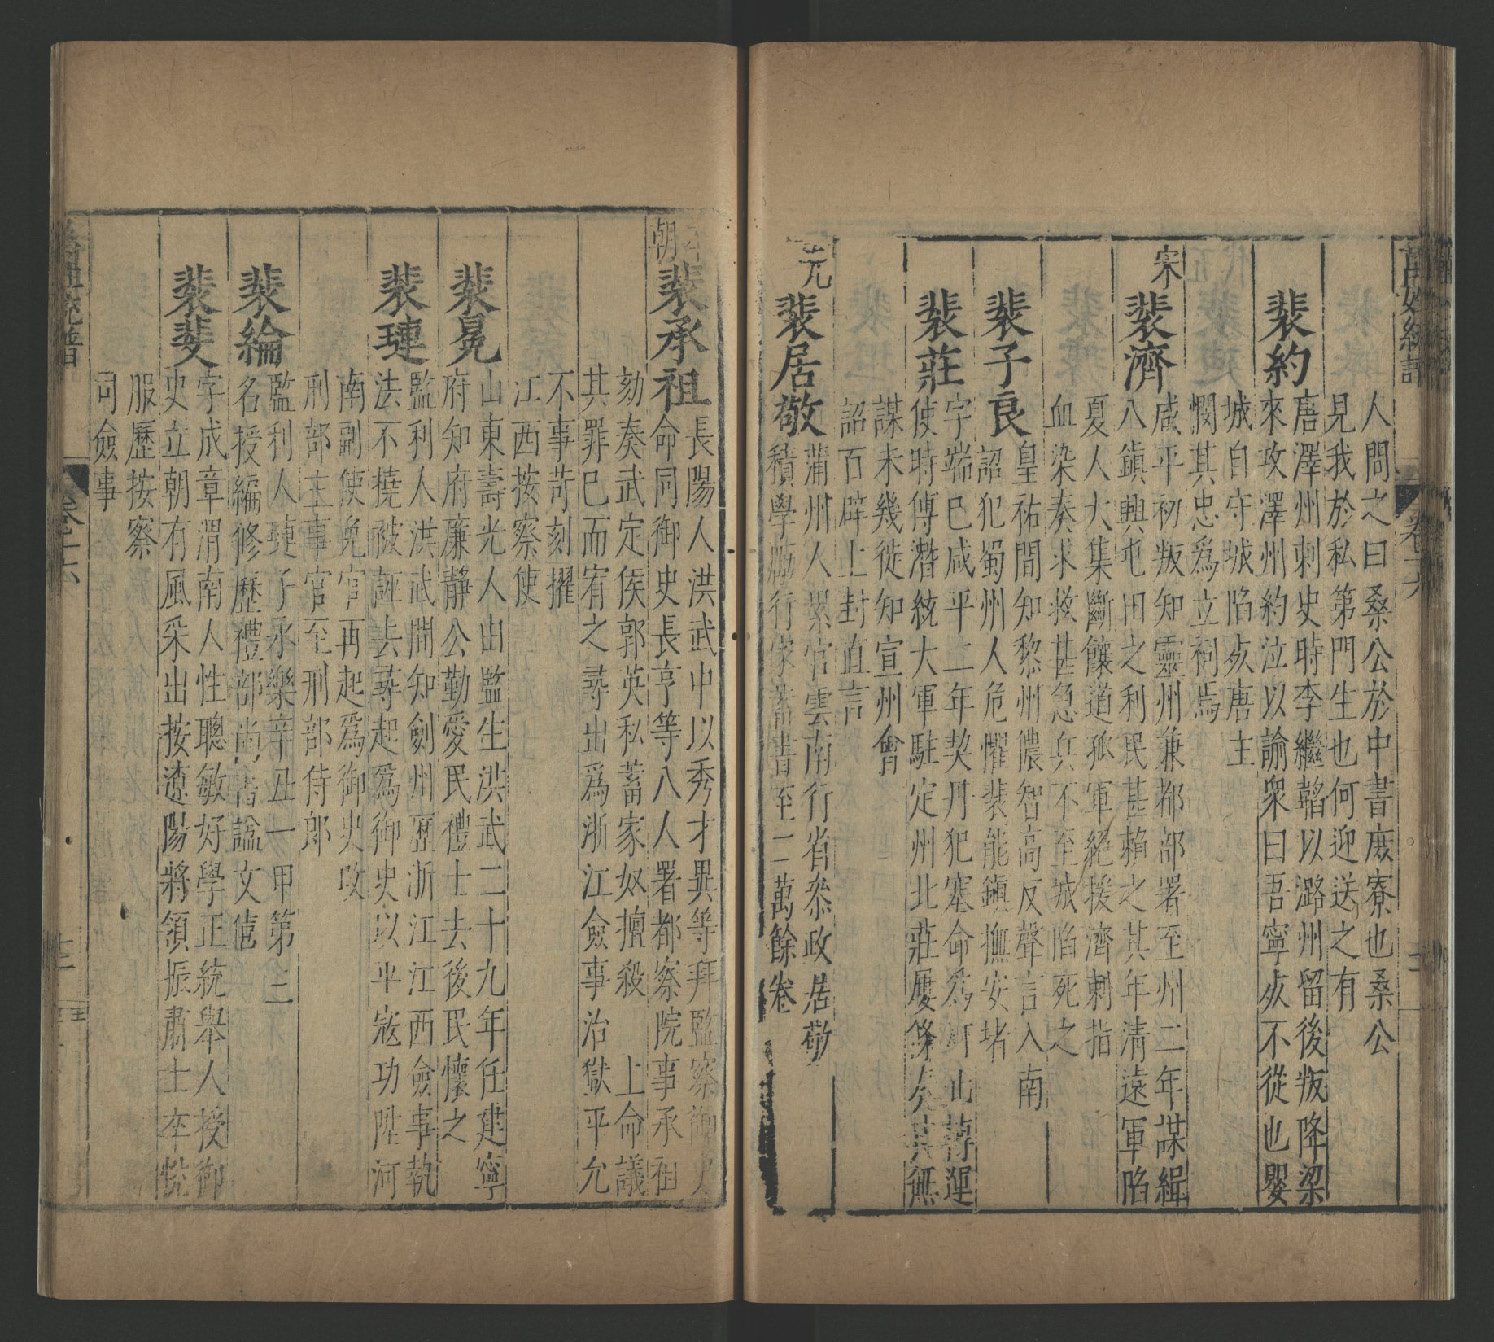 人問之曰桑公於中書庶寮也桑公
見我於私第門生也何迎送之有
裴約
唐澤州刺史時李繼韜以潞州留後叛降梁
來攻澤州約泣以諭衆曰吾寧死不從也嬰
城自守城陷死唐主
憫其忠爲立祠焉
宋
裴濟
咸平初叛知靈州兼都部署至州二年謀緝
八鎮興屯田之利民甚賴之其年清遠軍陷
夏人大集斷饟道孤軍絕援濟刺指
血染奏求救甚急兵不至城陷死之
裴子良
皇祐間知黎州儂智高反聲言入南
詔犯蜀州人危懼裴能鎮撫安堵
裴莊
字端巳咸平二年契丹犯塞命爲河北轉運
使時傅潛統大軍駐定州北莊屢條奏其無
謀未幾徙知宣州會
詔百辟上封直言
元
裴居敬
蒲州人累官雲南行省叅政居敬
積學勵行家蓄書至二萬餘卷
朝
裴承祖
長陽人洪武中以秀才異等拜監察御史
命同御史長亨等八人署都察院事承祖
劾奏武定侯郭英私蓄家奴擅殺 上命議
其罪巳而宥之尋出爲浙江僉事治獄平允
不事苛刻擢
江西按察使
裴晃
山東壽光人由監生洪武二十九年任建寧
府知府廉靜公勤愛民禮士去後民懷之
裴璉
監利人洪武間知劍州歷浙江江西僉事執
法不撓被誣去尋起爲御史以平寇功陞河
南副使免官再起爲御史改
刑部主事官至刑部侍郎
裴綸
監利人璉子永樂辛丑一甲第三
名授編修歷禮部尚書諡文僖
裴斐
字成章渭南人性聰敏好學正統舉人授御
史立朝有風采出按遼陽將領振肅士卒悅
服歷按察
司僉事